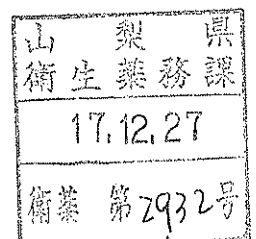 山梨県
衛生薬務課
17.12.27
衛薬 第2932号